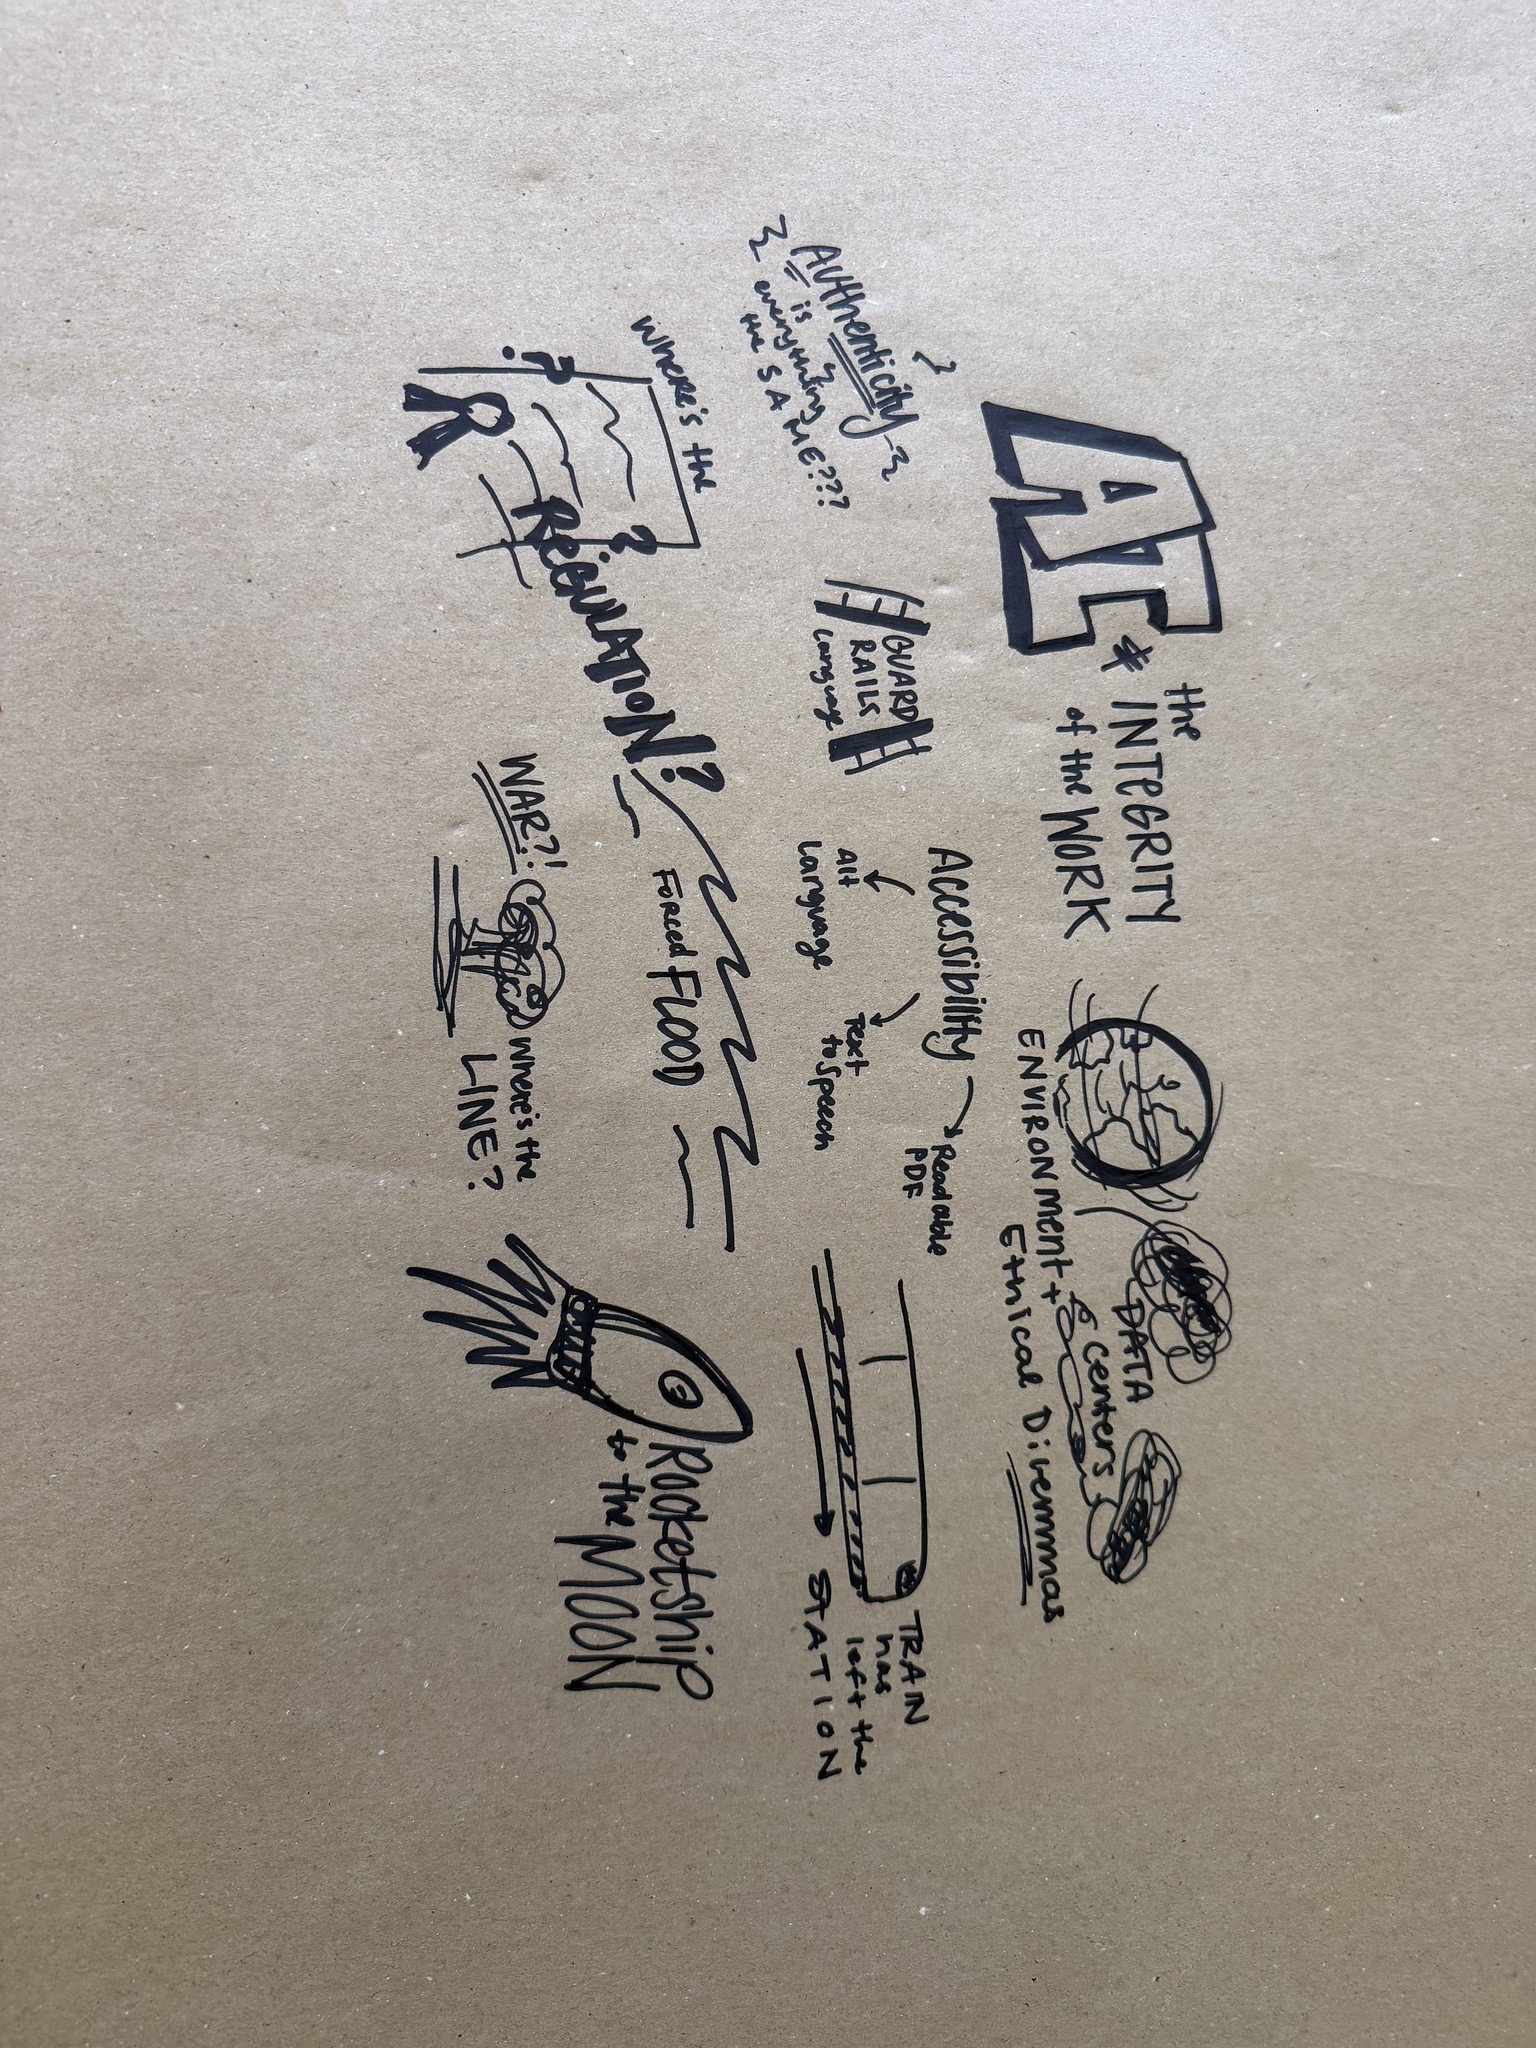 AI &
the
INTEGRITY
of the WORK
DATA
& Centers
ENVIRONMENT +
Ethical Divemmas
AUthenticity
is
everything
the SAME???
GUARD
RAILS
Language
Accessibility
Alt
Language
Text
to Speech
Readable
PDF
TRAIN
has
left the
STATION
WHERE'S the
? ?
REGULATION?
FORCED FLOOD
ROCKETSHIP
to the MOON
WAR?!
WHERE'S the
LINE?